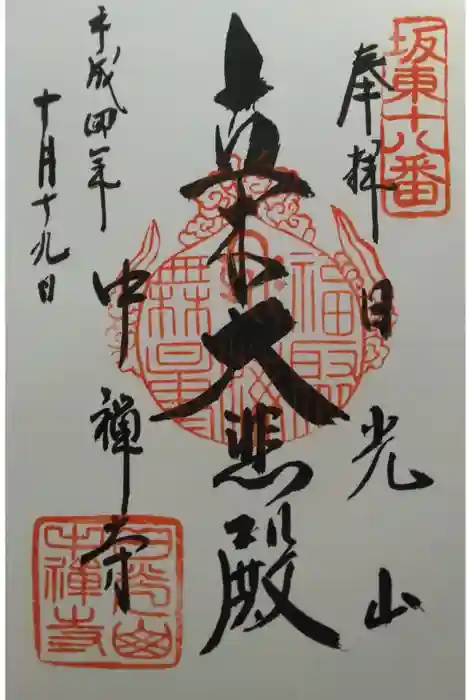 坂東十八番
奉拝
日光山
大悲殿
中禅寺
平成四年
十月十九日
日光山中禅寺